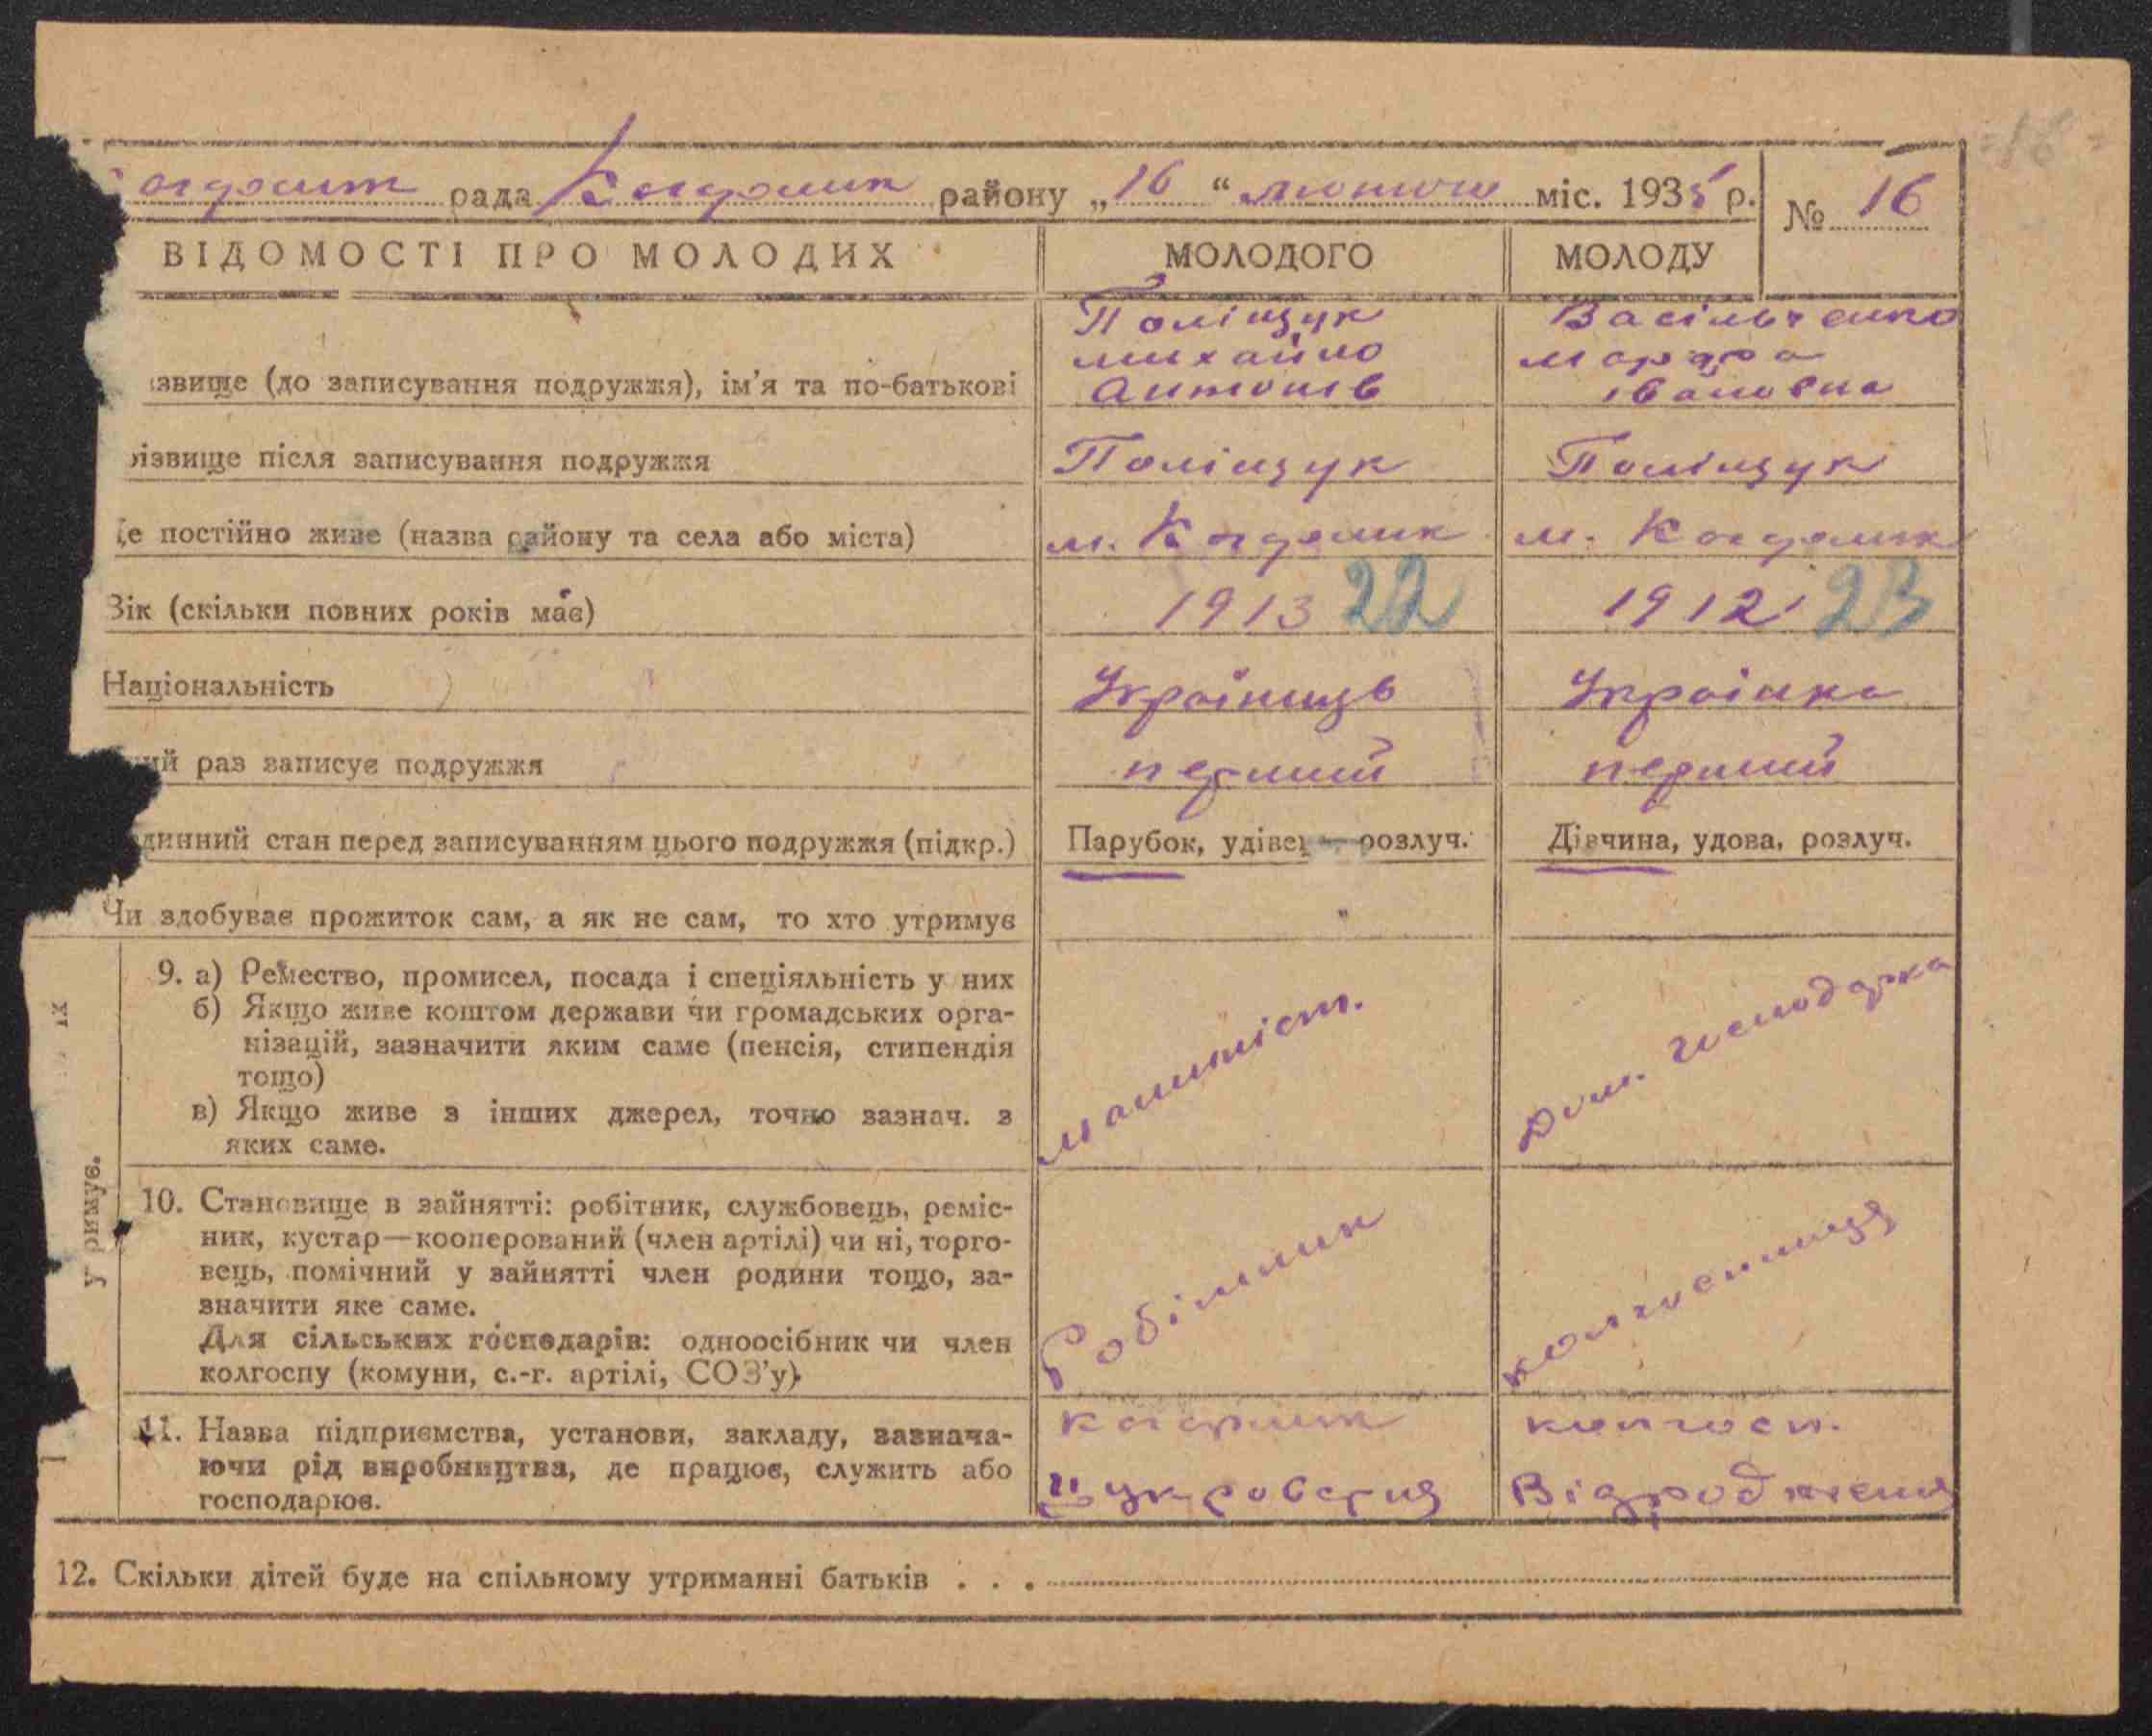 Кагарлик рада Кагарлик району „16“ лютого міс. 1935 р. № 16
ВІДОМОСТІ ПРО МОЛОДИХ МОЛОДОГО МОЛОДУ
ізвище (до записування подружжя), ім’я та по-батькові Поліщук Михайло Антонів Васільченко Марфа Івановна
різвище після записування подружжя Поліщук Поліщук
Де постійно живе (назва району та села або міста) м. Кагарлик м. Кагарлик
Вік (скільки повних років має) 1913 22 1912 23
Національність Українець Українка
ий раз записує подружжя перший перший
динний стан перед записуванням цього подружжя (підкр.) Парубок, удівец розлуч. Дівчина, удова, розлуч.
Чи здобуває прожиток сам, а як не сам, то хто утримує
их
утримує.
9. а) Ремество, промисел, посада і спеціяльність у них
б) Якщо живе коштом держави чи громадських орга-
нізацій, зазначити яким саме (пенсія, стипендія
тощо)
в) Якщо живе з інших джерел, точно зазнач. з
яких саме.
машиніст. Дом. господарка
10. Становище в зайнятті: робітник, службовець, реміс-
ник, кустар—кооперований (член артілі) чи ні, торго-
вець, помічний у зайнятті член родини тощо, за-
значити яке саме.
Для сільських господарів: одноосібник чи член
колгоспу (комуни, с.-г. артілі, СОЗ’у).
Робітник колгоспниця
11. Назва підприємства, установи, закладу, зазнача-
ючи рід виробництва, де працює, служить або
господарює.
Кагарлик колгосп.
Цукроварня Відродження
12. Скільки дітей буде на спільному утриманні батьків . . .